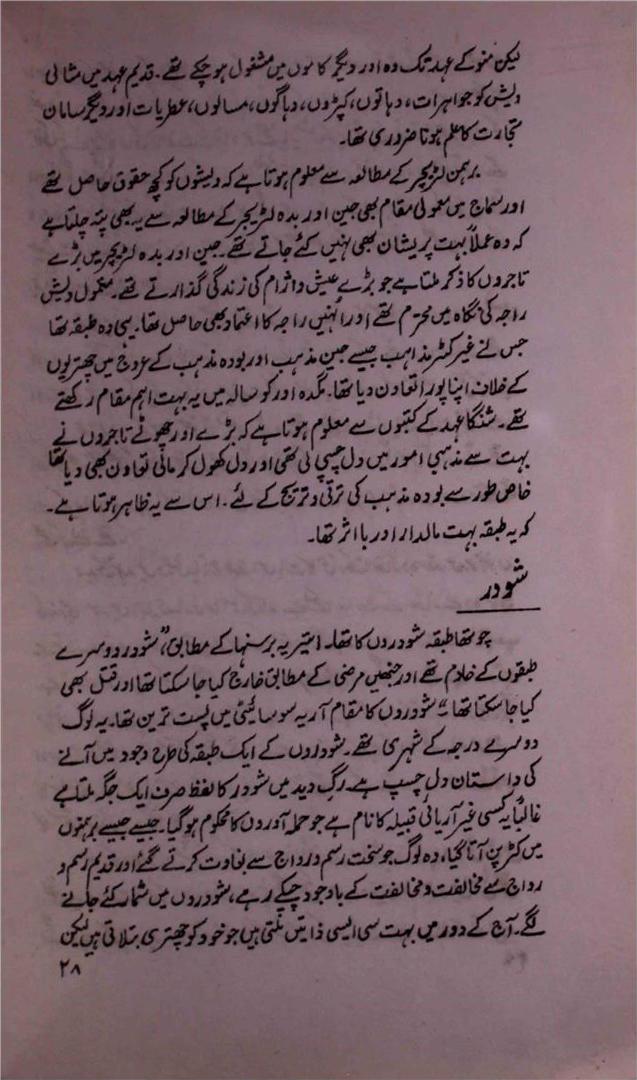 لیکن منو کے عہد تک وہ اور دیگر کاموں میں مشغول ہو چکے تھے۔ قدیم عہد میں مثالی
ویش کو جواہرات، دہاتوں، کپڑوں، دہاگوں، مسالوں، عطریات اور دیگر سامان
تجارت کا علم ہونا ضروری تھا۔
برہمن لٹریچر کے مطالعہ سے معلوم ہوتا ہے کہ ویشوں کو کچھ حقوق حاصل تھے
اور سماج میں معمولی مقام بھی جین اور بدہ لٹریچر کے مطالعہ سے یہ بھی پتہ چلتا ہے
کہ وہ عملاً بہت پریشان بھی نہیں کئے جاتے تھے۔ جین اور بدہ لٹریچر میں بڑے
تاجروں کا ذکر ملتا ہے جو بڑے عیش و آرام کی زندگی گذارتے تھے۔ متمول ویش
راجہ کی نگاہ میں محترم تھے اور انہیں راجہ کا اعتماد بھی حاصل تھا۔ یہی وہ طبقہ تھا
جس نے غیر کٹر مذاہب جیسے جین مذہب اور بودہ مذہب کے عروج میں چھتریوں
کے خلاف اپنا پورا تعاون دیا تھا۔ مگدہ اور کوسالہ میں یہ بہت اہم مقام رکھتے
تھے۔ شنگا عہد کے کتبوں سے معلوم ہوتا ہے کہ بڑے اور چھوٹے تاجروں نے
بہت سے مذہبی امور میں دل چسپی لی تھی اور دل کھول کر مالی تعاون بھی دیا تھا
خاص طور سے بودہ مذہب کی ترقی و ترویج کے لئے۔ اس سے یہ ظاہر ہوتا ہے۔
کہ یہ طبقہ بہت مالدار اور با اثر تھا۔
شودر
چوتھا طبقہ شودروں کا تھا۔ ایتیریہ برہنہا کے مطابق، "شودر دوسرے
طبقوں کے خادم تھے اور جنھیں مرضی کے مطابق خارج کیا جا سکتا تھا اور قتل بھی
کیا جا سکتا تھا"۔ شودروں کا مقام آریہ سوسائیٹی میں پست ترین تھا۔ یہ لوگ
دوسرے درجہ کے شہری تھے۔ شودروں کے ایک طبقہ کی طرح وجود میں آنے
کی داستان دل چسپ ہے۔ رگ وید میں شودر کا لفظ صرف ایک جگہ ملتا ہے
غالباً یہ کسی غیر آریائی قبیلہ کا نام ہے جو حملہ آوروں کا محکوم ہو گیا۔ جیسے جیسے برہمنوں
میں کٹر پن آتا گیا، وہ لوگ جو سخت رسم و رواج سے بغاوت کرتے گئے اور قدیم رسم و
رواج سے مخالفت و مخالفت کے باوجود چپکے رہے، شودروں میں شمار کئے جانے
لگے۔ آج کے دور میں بہت سی ایسی ذاتیں ملتی ہیں جو خود کو چھتری بتلاتی ہیں لیکن
۲۸